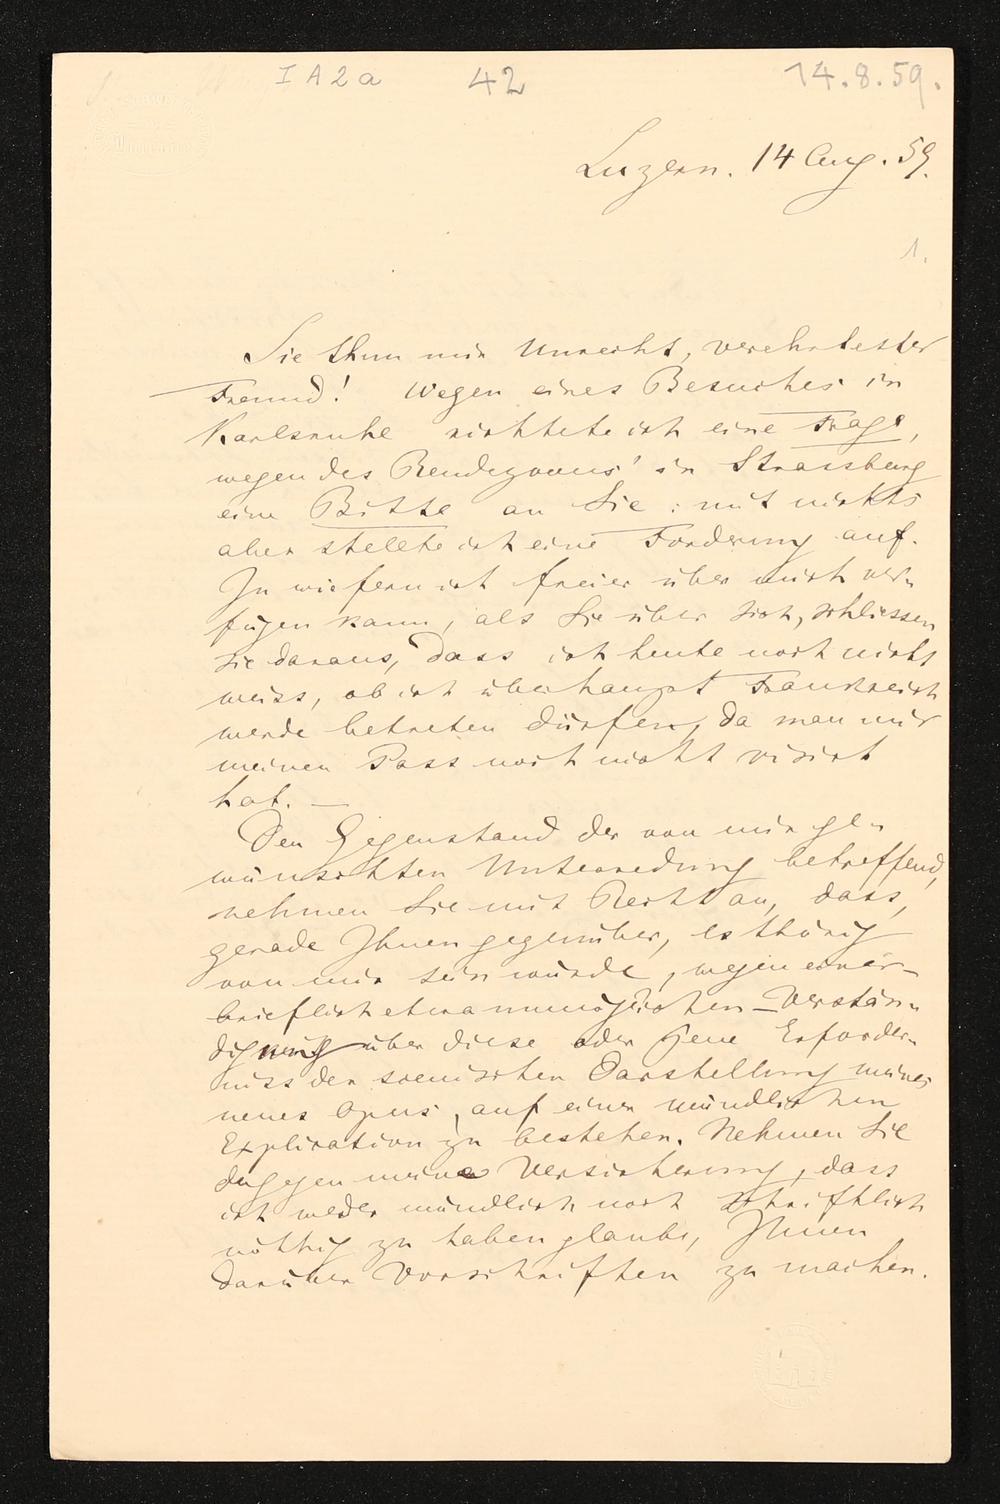 I A 2 a 42 14.8.59.
Luzern. 14 Aug. 59.
1.
Sie thun mir Unrecht, verehrtester
Freund! Wegen eines Besuches in
Karlsruhe richtete ich eine Frage,
wegen des Rendezvous' in Strassburg
eine Bitte an Sie: mit nichts
aber stellte ich eine Forderung auf.
In wiefern ich freier über mich ver-
fügen kann, als Sie über sich, schliessen
Sie daraus, dass ich heute noch nicht
weiss, ob ich überhaupt Frankreich
werde betreten dürfen, da man mir
meinen Pass noch nicht visirt
hat. —
Den Gegenstand der von mir ge-
wünschten Unterredung betreffend,
nehmen Sie mit Recht an, dass,
gerade Ihnen gegenüber, es thörig
von mir sein würde, wegen einer
brieflich etwa unmöglichen Verstän-
digung über diese oder jene Erforder-
niss der scenischen Darstellung meines
neues Opus, auf einer mündlichen
Explication zu bestehen. Nehmen Sie
dagegen meine Versicherung, dass
ich weder mündlich noch schriftlich
nöthig zu haben glaube, Ihnen
darüber Vorschriften zu machen.